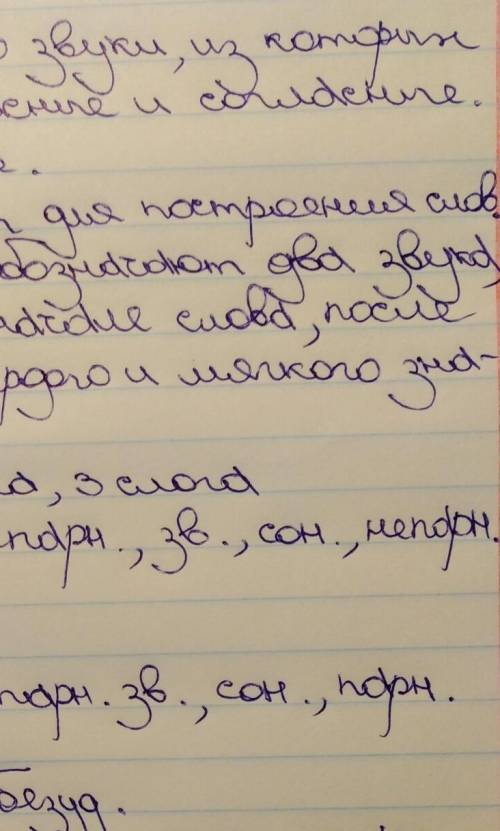 звуки, из которых
и согласные.
для построения слов.
обозначают два звука,
начале слова, после
и мягкого зна-
3 слога
зв., сон., непарн.
парн. зв., сон., парн.
безуд.